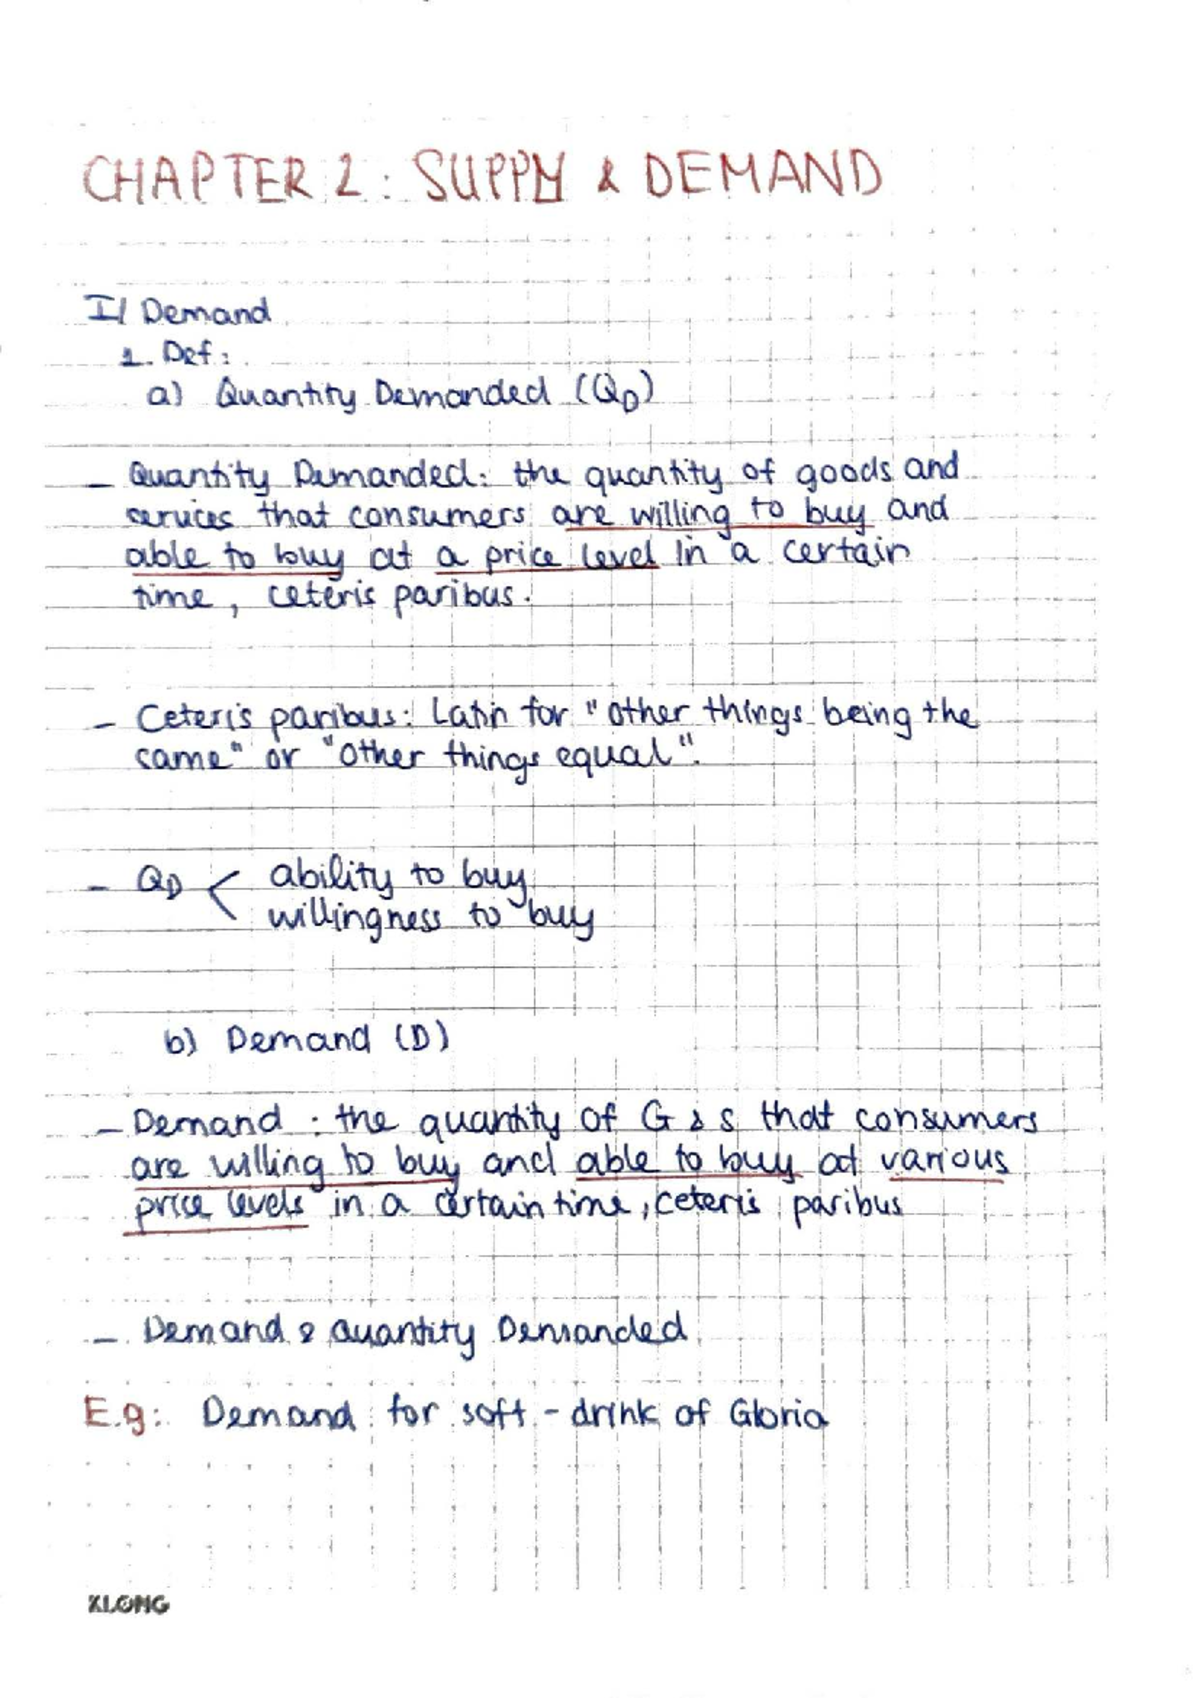 CHAPTER 2: SUPPLY & DEMAND
I/ Demand
1. Def:
a) Quantity Demanded (QD)
- Quantity Demanded: the quantity of goods and
services that consumers are willing to buy and
able to buy at a price level in a certain
time, ceteris paribus.
- Ceteris paribus: Latin for "other things being the
same" or "other things equal".
- QD < ability to buy
willingness to buy
b) Demand (D)
- Demand : the quantity of G & S that consumers
are willing to buy and able to buy at various
price levels in a certain time, ceteris paribus
- Demand & Quantity Demanded
E.g: Demand for soft-drink of Gloria
KLONG